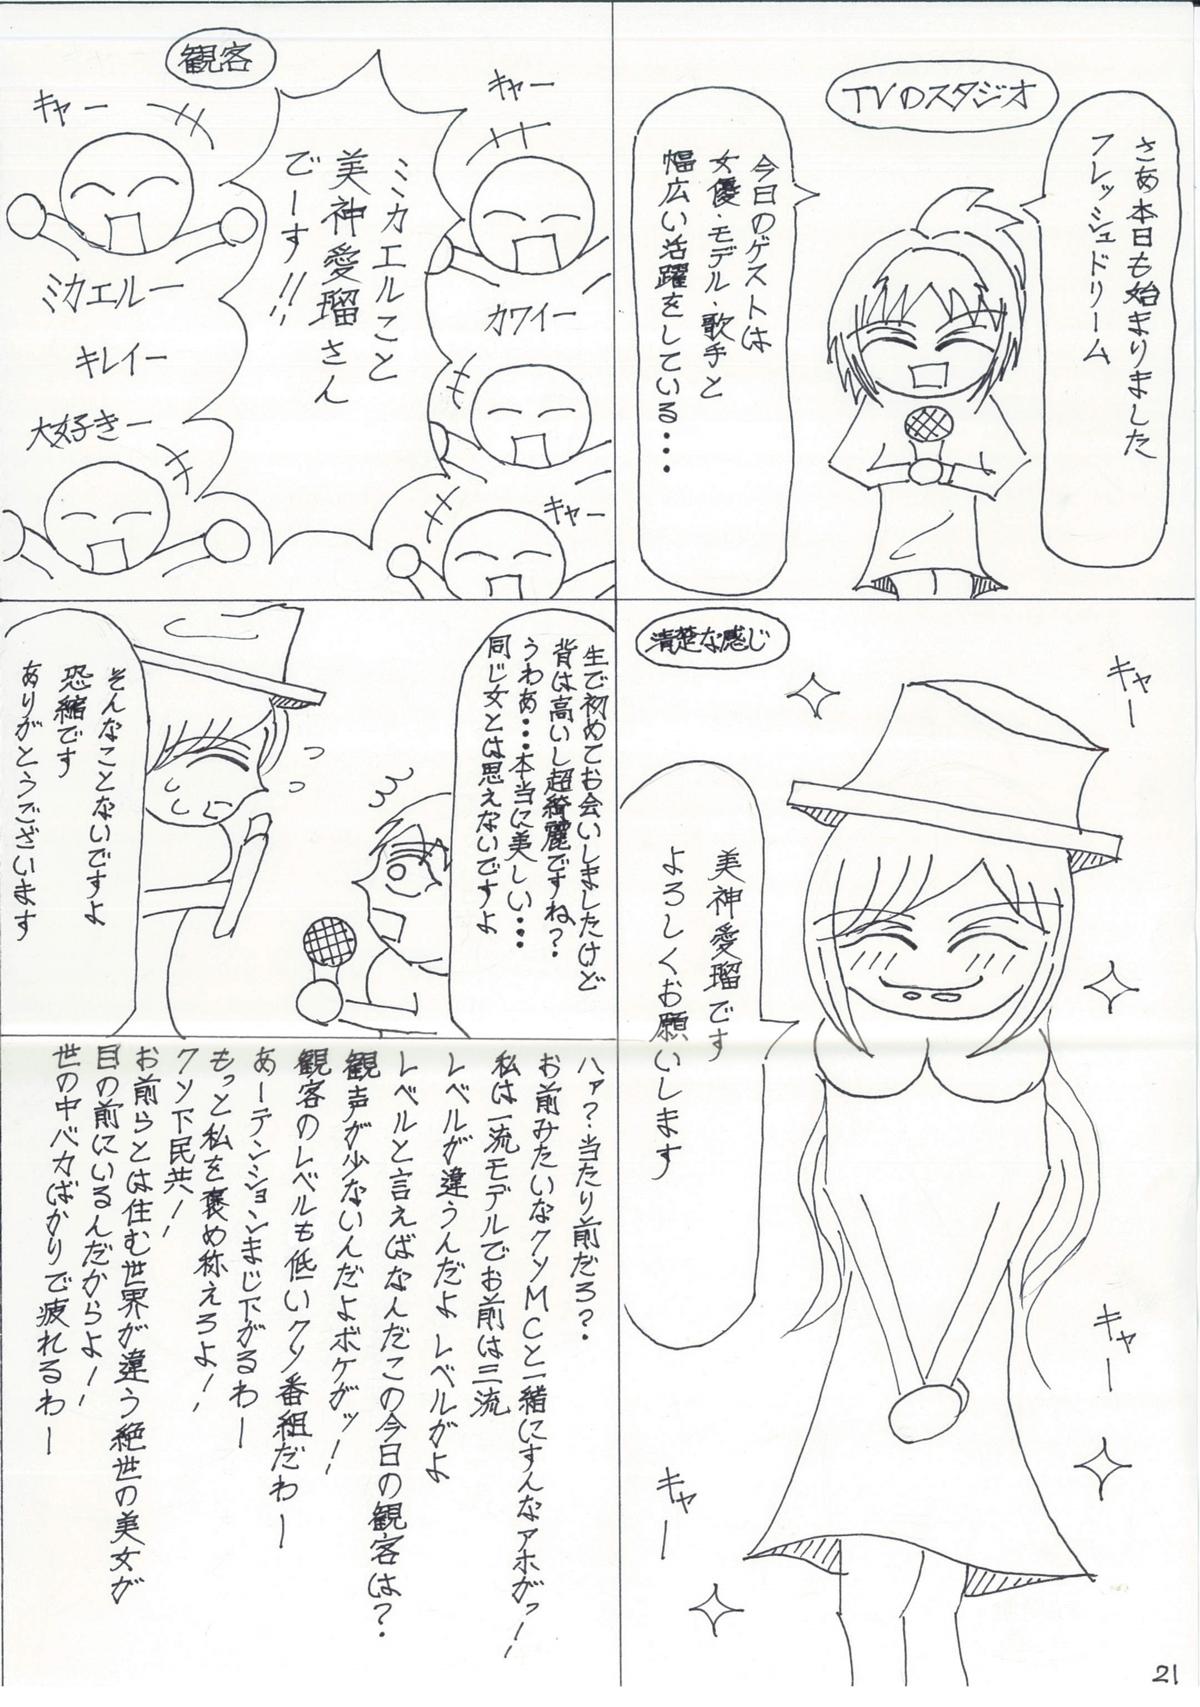 TVのスタジオ
さあ本日も始まりました
フレッシュドリーム
今日のゲストは
女優・モデル・歌手と
幅広い活躍をしている・・・
観客
キャー
キャー
ミカエルこと
美神愛瑠さん
でーす!!
カワイー
キャー
ミカエルー
キレイー
大好きー
清楚な感じ
キャー
美神愛瑠です
よろしくお願いします
キャー
キャー
生で初めてお会いしましたけど
背は高いし超綺麗ですね?
うわぁ・・・本当に美しい・・・
同じ女とは思えないですよ
そんなことないですよ
恐縮です
ありがとうございます
ハァ?当たり前だろ?
お前みたいなクソMCと一緒にすんなアホがっ!
私は一流モデルでお前は三流
レベルが違うんだよレベルがよ
レベルと言えばなんだこの今日の観客は?
観声が少ないんだよボケがッ!
観客のレベルも低いクソ番組だわー
あーテンションまじ下がるわー
もっと私を褒め称えろよ!
クソ下民共!
お前らとは住む世界が違う絶世の美女が
目の前にいるんだからよ!
世の中バカばかりで疲れるわー
21